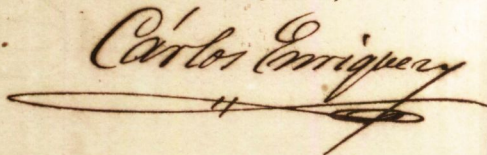 Cárlos Enriquez